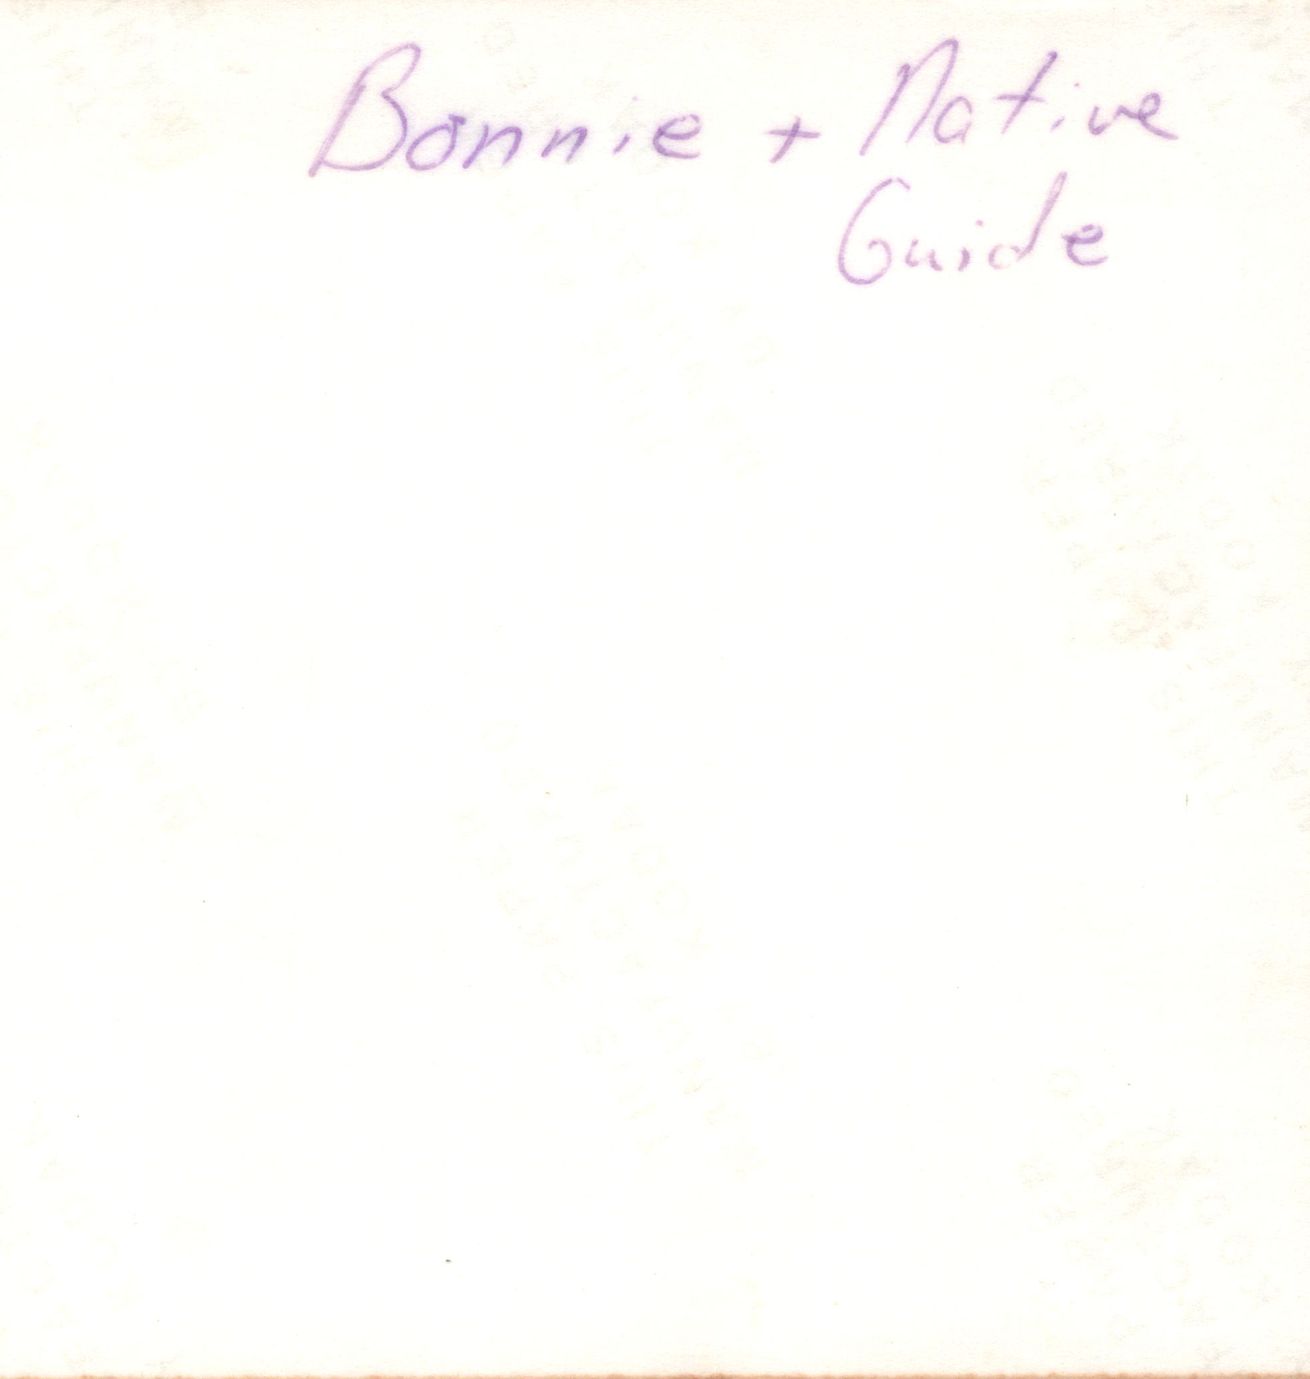 Bonnie + Native
Guide